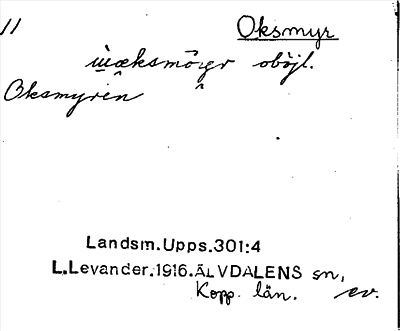 11 Oksmyr
ẁ̤æksmö̂ɪgr oböjl.
Oksmyren
Landsm.Upps.301:4
L.Levander.1916.ÄLVDALENS sn,
Kopp. län. ev.